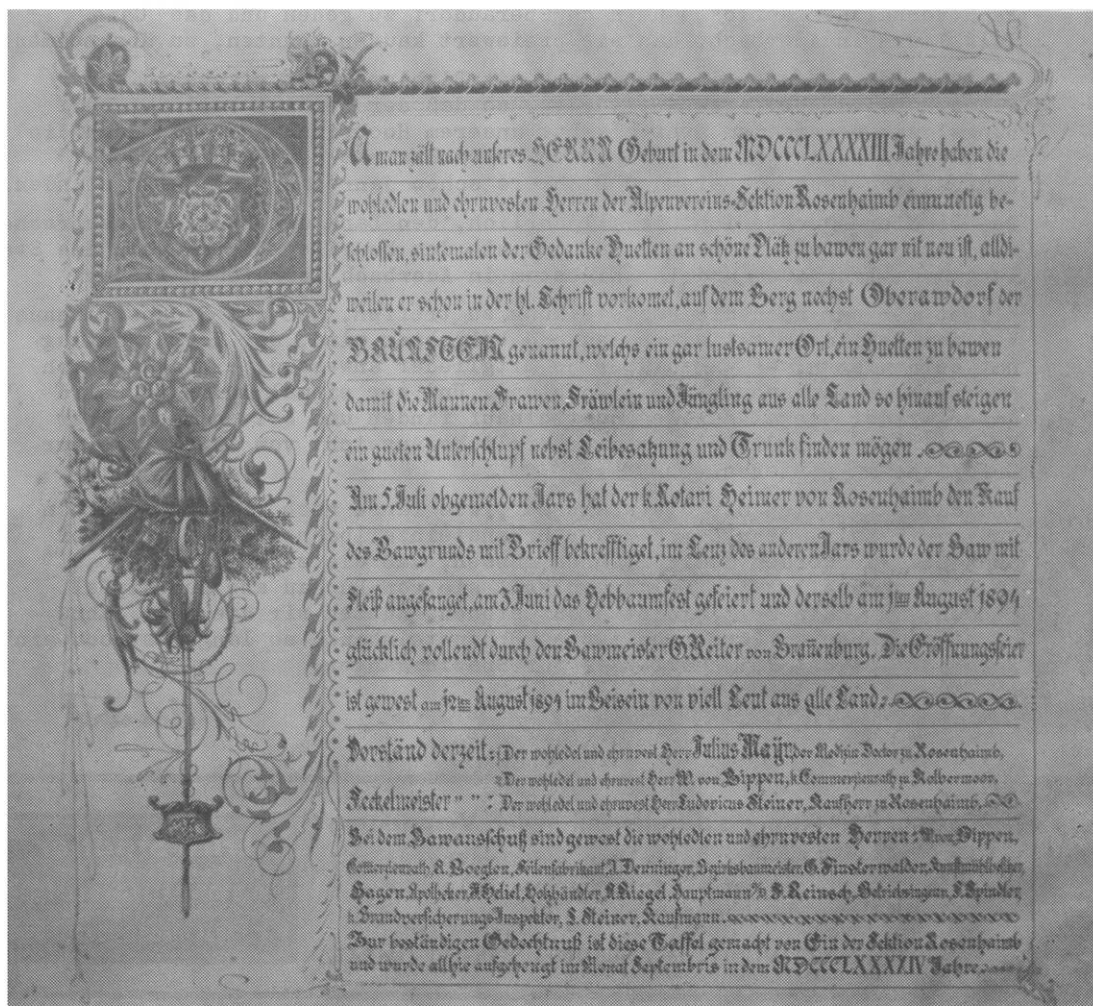 A man zält nach unseres HERRN Geburt in dem MDCCCLXXXXIII Jahre haben die
wohledlen und ehrnvesten Herren der Alpenvereins-Sektion Rosenhaimb einmuetig be-
schlossen, sintemalen der Gedanke Huetten an schöne Plätz zu bawen gar nit neu ist, alldi-
weilen er schon in der hl. Schrift vorkomet, auf dem Berg nechst Oberawdorf der
BRÜNSTEIN genannt, welchs ein gar lustsamer Ort, ein Huetten zu bawen
damit die Mannen, Frawen, Fräwlein und Jüngling aus alle Land so hinauf steigen
ein gueten Unterschlupf nebst Leibesatzung und Trunk finden mögen.
Am 5. Juli obgemelden Jars hat der k. Notari Heimer von Rosenhaimb den Kauf
des Bawgrunds mit Brieff bekrefftiget, im Lenz des anderen Jars wurde der Baw mit
Fleiß angefanget, am 3. Juni das Hebbaumfest gefeiert und derselb am jten August 1894
glücklich vollendt durch den Bawmeister G. Reiter von Brañenburg. Die Eröffnungsfeier
ist gewest am j2ten August j894 im Beisein von viell Leut aus alle Land:
Vorständ derzeit: 1. Der wohledel und ehrnvest Herr Julius Mayr, der Medizin Doctor zu Rosenhaimb,
2. Der wohledel und ehrnvest Herr W. von Bippen, k. Commerzienrath zu Kolbermoor,
Seckelmeister " " : Der wohledel und ehrnvest Herr Ludovicus Steiner, Kaufherr zu Rosenhaimb,
Bei dem Bawausschuß sind gewest die wohledlen und ehrnvesten Herren: W. von Bippen,
Commerzienrath, Boeglen, Seilenfabrikant, J. Denninger, Bezirksbaumeister, G. Finsterwalder, Kunstmühlbesitzer,
Hagen, Apotheker, Holzhändler, A. Riegel, Hauptmann a/D, F. Reinsch, Betriebsingen., Spindler,
k. Brandversicherungs Inspektor, L. Steiner, Kaufmann.
Zur beständigen Gedechtnuß ist diese Taffel gemacht von Ein der Sektion Rosenhaimb
und wurde allhie aufgehengt im Monat Septembris in dem MDCCCLXXXXIV Jahre.